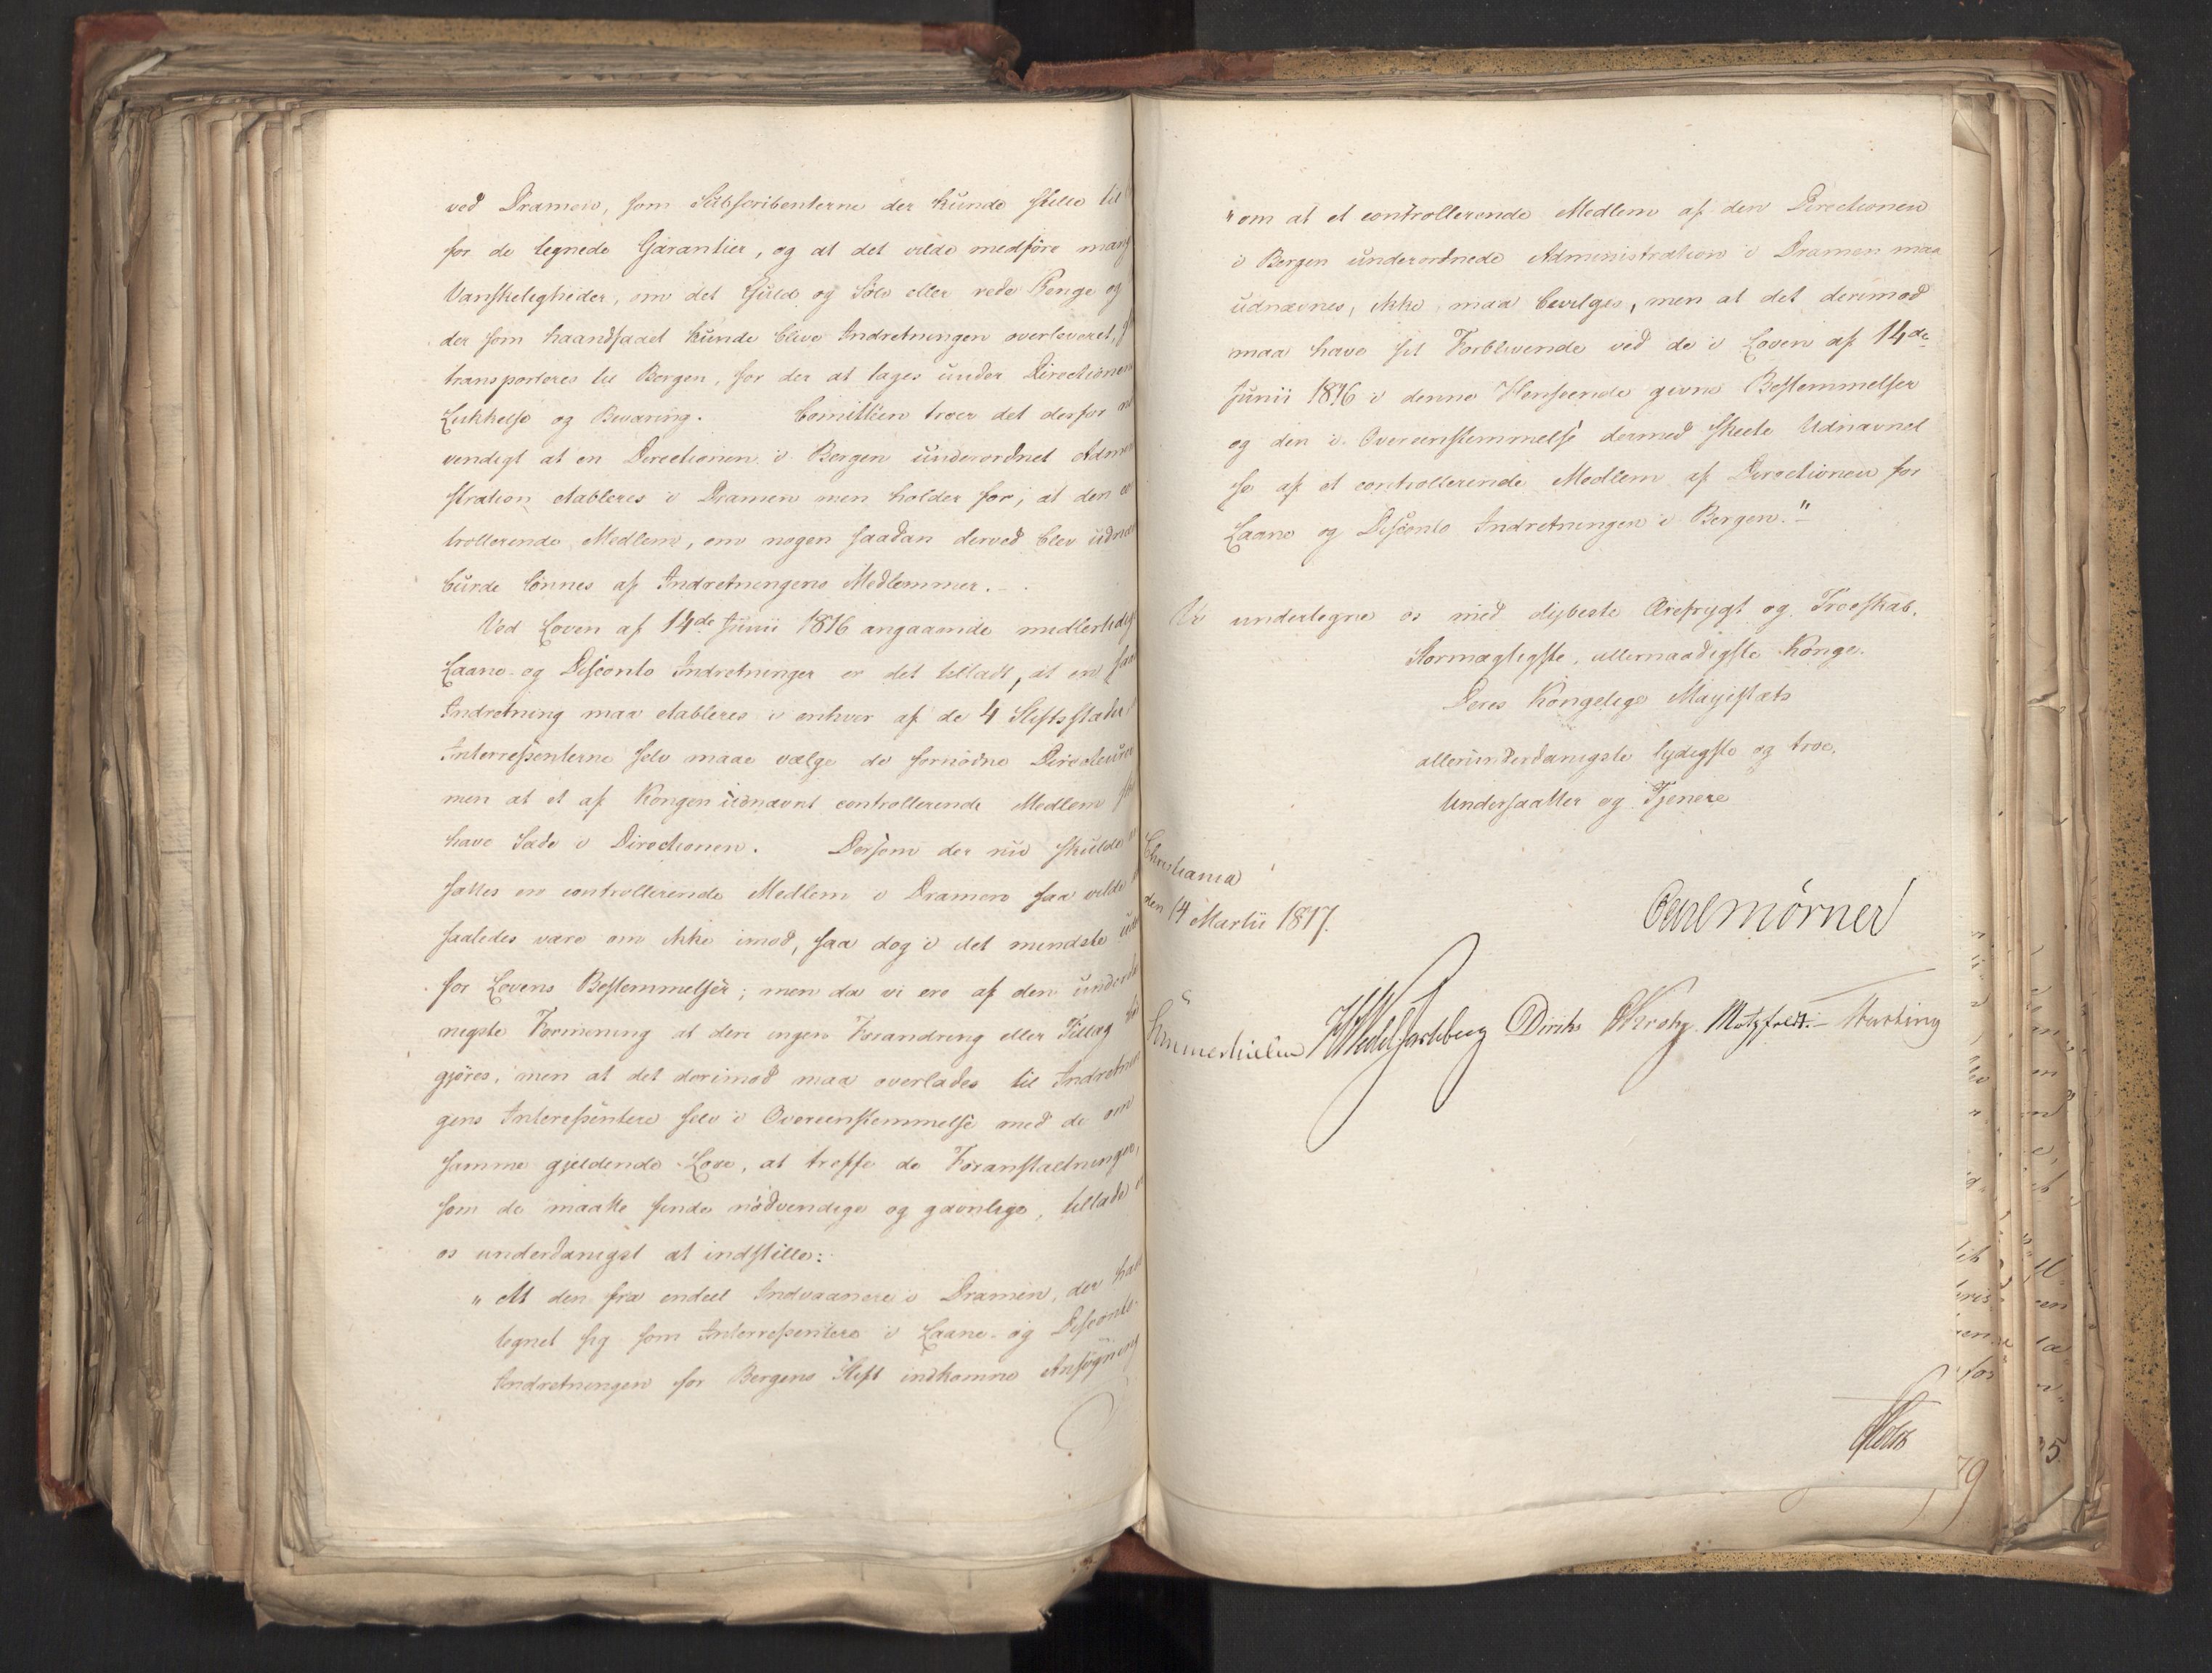 ved Dramen, som Subscribenterne der kunde stille til
for de tegnede Garantier, og at det vilde medföre mang
Vanskeligheder, om det Guld og Sölv eller rede Penge og
der som haandfaaet kunde blive Indretningen overleveret,
transporteres til Bergen, for der at tages under Directionens
Lukkelse og Bevaring. Comitteen troer det derfor
vendigt at en Directionen i Bergen underordnet Admin
stration etableres i Dramen men holder for, at den con
trollerende Medlem, om nogen saadan derved blev udnæv
burde lönnes af Indretningens Medlemmer.
Ved Loven af 14de Junii 1816 angaaende midlertidige
Laane- og Disconto Indretninger er det tilladt, at en saad
Indretning maa etableres i enhver af de 4 Stiftsstæder
Interressenterne selv maae vælge de fornödne Directeurer
men at et af Kongen udnævnt controllerende Medlem
have Sæde i Directionen. Dersom der nu skulde
sættes en controllerende Medlem i Dramen saa vilde
saaledes være om ikke imod, saa dog i det mindste
for Lovens Bestemmelser; men da vi ere af den underda
nigste Formening at deri ingen Forandring eller Tillæg
gjöres, men at det derimod maa overlades til Indretnin
gens Interessentere selv i Overeensstemmelse med de om
samme gjeldende Love, at treffe de Foranstaltninger,
som de maatte finde nödvendige og gavnlige, tillade
os underdanigst at indstille:
" At den fra endeel Indvaanere i Dramen, der have
tegnet sig som Interressentere i Laane- og Disconto-
Indretningen for Bergens Stift indkomne Ansögning
" om at et controllerende Medlem af den Directionen
i Bergen underordnede Administration i Dramen maa
udnævnes, ikke maa bevilges, men at det derimod
maa have sit Forblivende ved de i Loven af 14de
Junii 1816 i denne Henseende givne Bestemmelser
og den i Overeensstemmelse dermed skeete Udnævnel
se af et controllerende Medlem af Directionen for
Laane og Disconto Indretningen i Bergen."
Vi undertegne os med dybeste Ærefrygt og Troeskab.
Stormægtigste, allernaadigste Konge.
Deres Kongelige Majestæts
allerunderdanigste lydigste og troe,
Undersaatter og Tjenere
Christiania
den 14 Martii 1817.
Carl Mörner
Sommerhielm HWedel Jarlsberg Diriks Krohg. Motzfeldt.- Hersleb
Holst
79